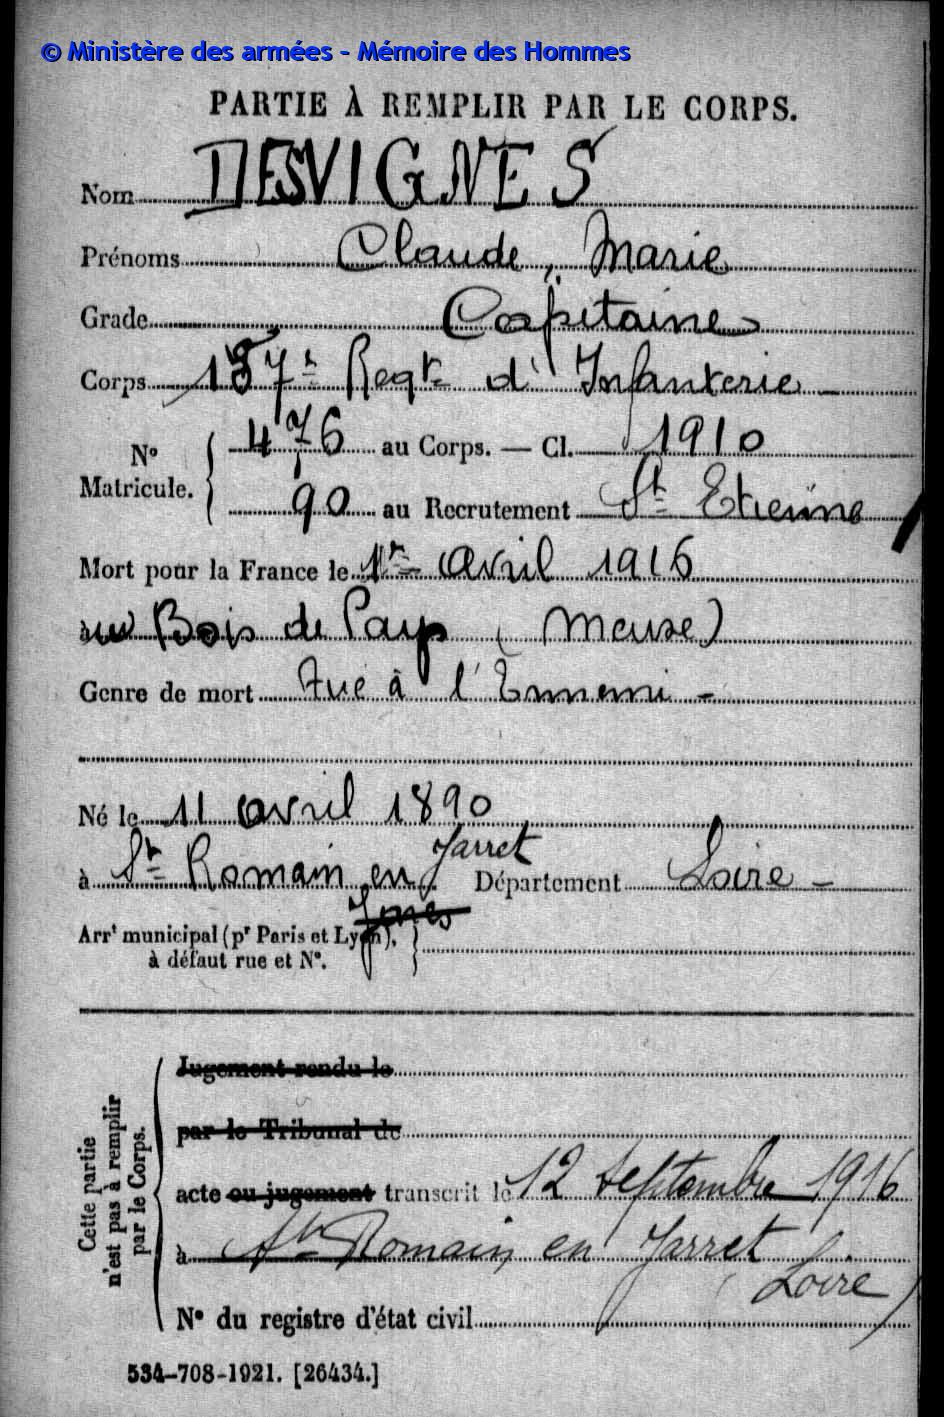 © Ministère des armées - Mémoire des Hommes
PARTIE À REMPLIR PAR LE CORPS.
Nom DESVIGNES
Prénoms Claude, Marie
Grade Capitaine
Corps 137e Regt d'Infanterie
No Matricule. 476 au Corps. — Cl. 1910
90 au Recrutement St Etienne
Mort pour la France le 1er Avril 1916
au Bois de Pays (Meuse)
Genre de mort Tué à l'Ennemi
Né le 11 avril 1890
à St Romain en Jarret Département Loire
Arrt municipal (pr Paris et Lyon),
à défaut rue et No.
Cette partie n'est pas à remplir par le Corps.
Jugement rendu le
par le Tribunal de
acte ou jugement transcrit le 12 Septembre 1916
à St Romain en Jarret
(Loire)
No du registre d'état civil
534-708-1921. [26434.]